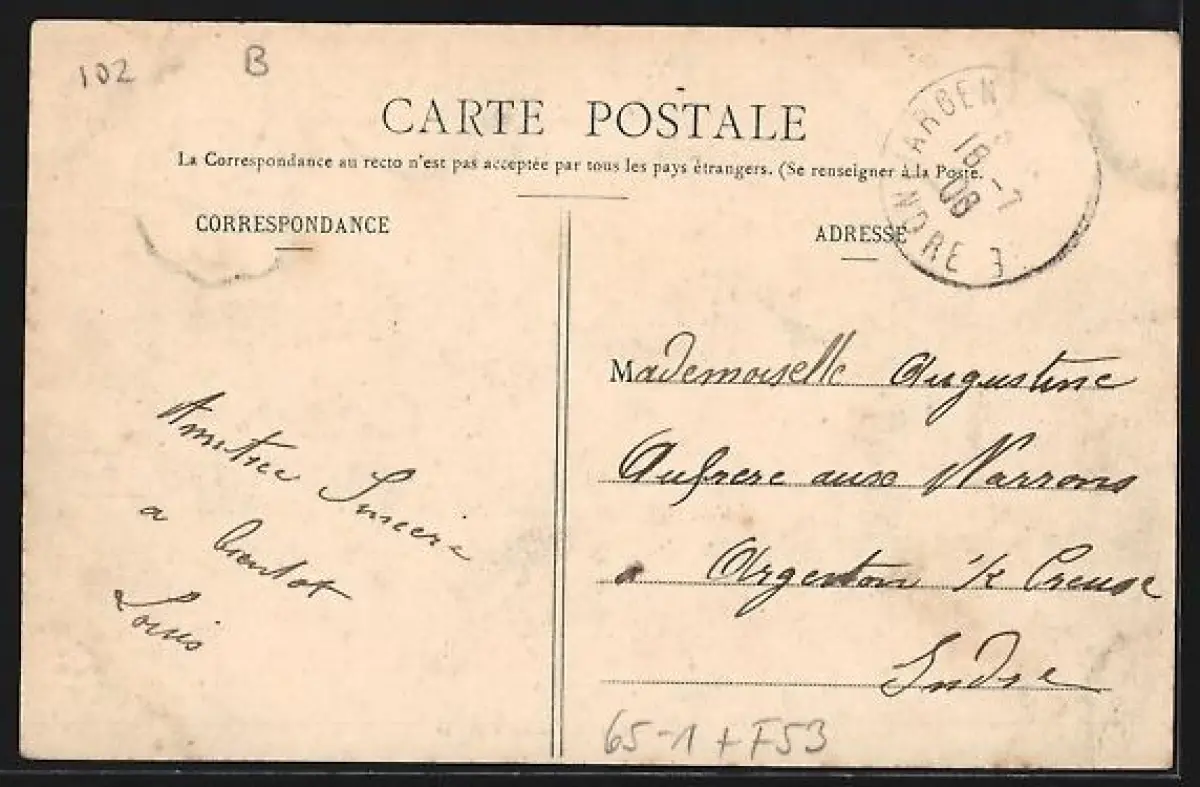 102 B
CARTE POSTALE
La Correspondance au recto n'est pas acceptée par tous les pays étrangers. (Se renseigner à la Poste.
CORRESPONDANCE
ADRESSE
ARGEN
18 -7
08
INDRE
Amitiee Sincere
a bientot
Louis
Mademoiselle Augustine
Aufrere aux Narrons
a Argenton s/ Creuse
Indre
65-1 + F53